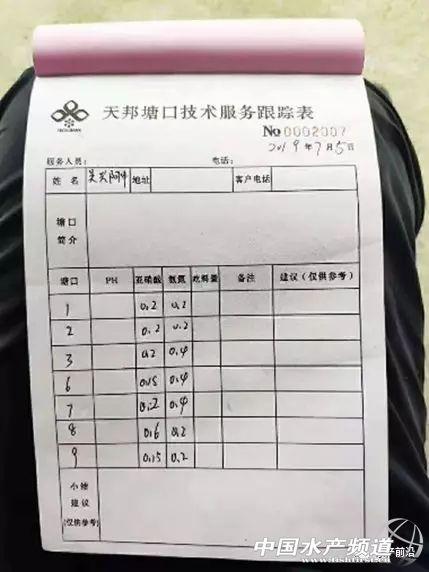 天邦塘口技术服务跟踪表
№ 0002007
2019年7月5日
服务人员： 电话：
姓名 地址 客户电话
塘口简介
塘口 PH 亚硝酸 氨氮 吃料量 备注 建议（仅供参考）
1 0.2 0.2
2 0.2 0.2
3 0.2 0.4
6 0.15 0.4
7 0.2 0.4
8 0.6 0.2
9 0.15 0.2
小结
建议
(仅供参考)
中国水产频道
www.fishfirst.cn
水产前沿